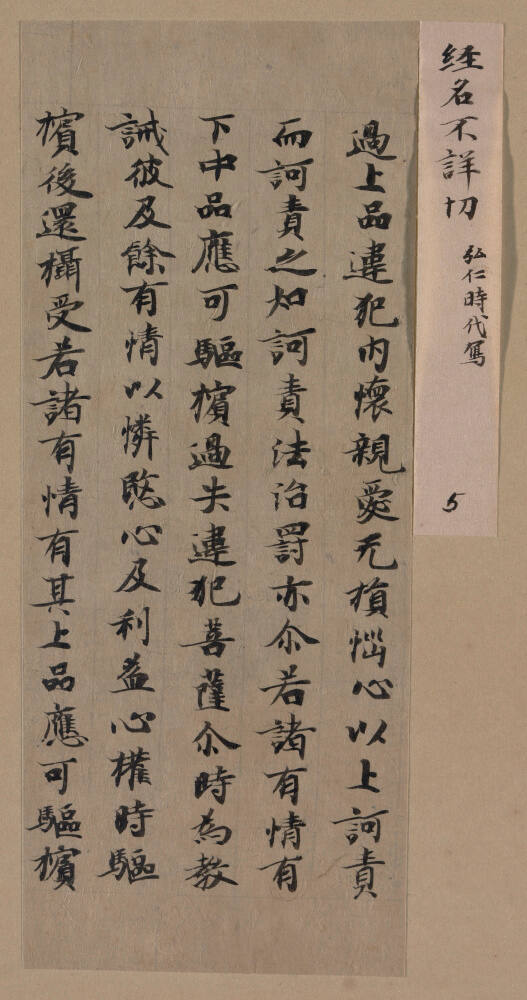 経名不詳切 弘仁時代写
5
過上品違犯内懐親愛无損惱心以上訶責
而訶責之如訶責法治罸亦尒若諸有情有
下中品應可驅擯過失違犯菩薩尒時為教
誡彼及餘有情以憐愍心及利益心權時驅
擯後還攝受若諸有情有其上品應可驅擯